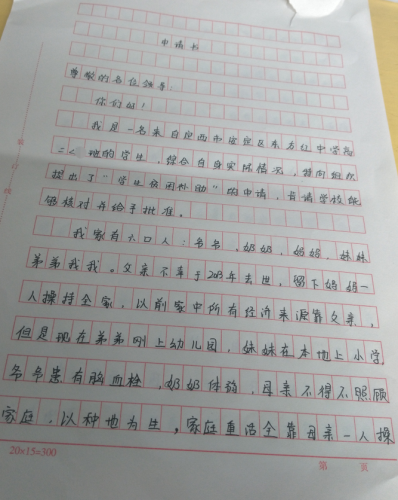 申请书
尊敬的各位领导：
你们好！
我是一名来自定西市安定区东方红中学高
二（ ）班的学生，结合自身实际情况，特向组织
提出了“学生贫困补助”的申请，肯请学校能
够核对并给予批准。
我家有六口人：爷爷，奶奶，妈妈，妹妹
弟弟我我。父亲不幸于2013年去世，留下妈妈一
人操持全家，以前家中所有经济来源靠父亲，
但是现在弟弟刚上幼儿园，妹妹在本地上小学，
爷爷患有脑血栓，奶奶体弱，母亲不得不照顾
家庭，以种地为生，家庭重活全靠母亲一人操
20×15=300
第 页